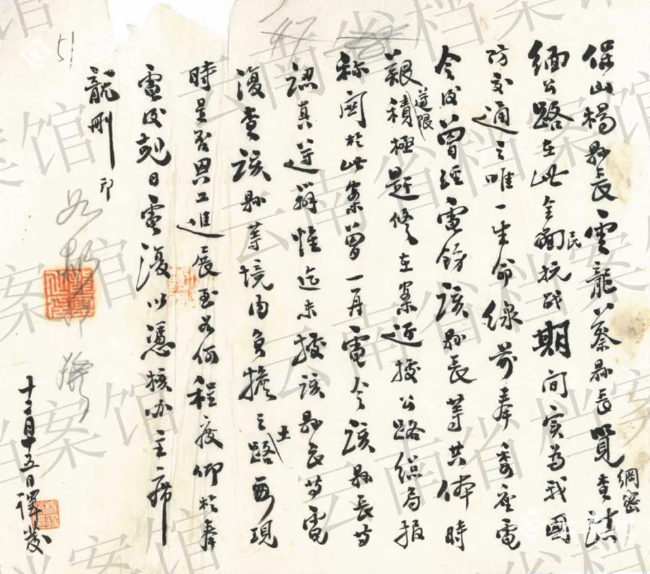 51
保山楊縣長雲龍蔡縣長覽綱密查滇
緬公路在此全民抗战期间实為我國
防交通之唯一生命線前奉委座電
令後曾經電飭該縣長等共體時
艱遵限積極趕修在案近據公路總局报
称關於此案曾一再電令該縣長等
認真遵辦惟迄未據該縣長等電
復查該縣等境内負擔之土路面現
時是否興工進展至若何程度仰於奉
電後剋日電復以憑核办主席
龍刪印
十二月十五日譯發
云南省档案馆